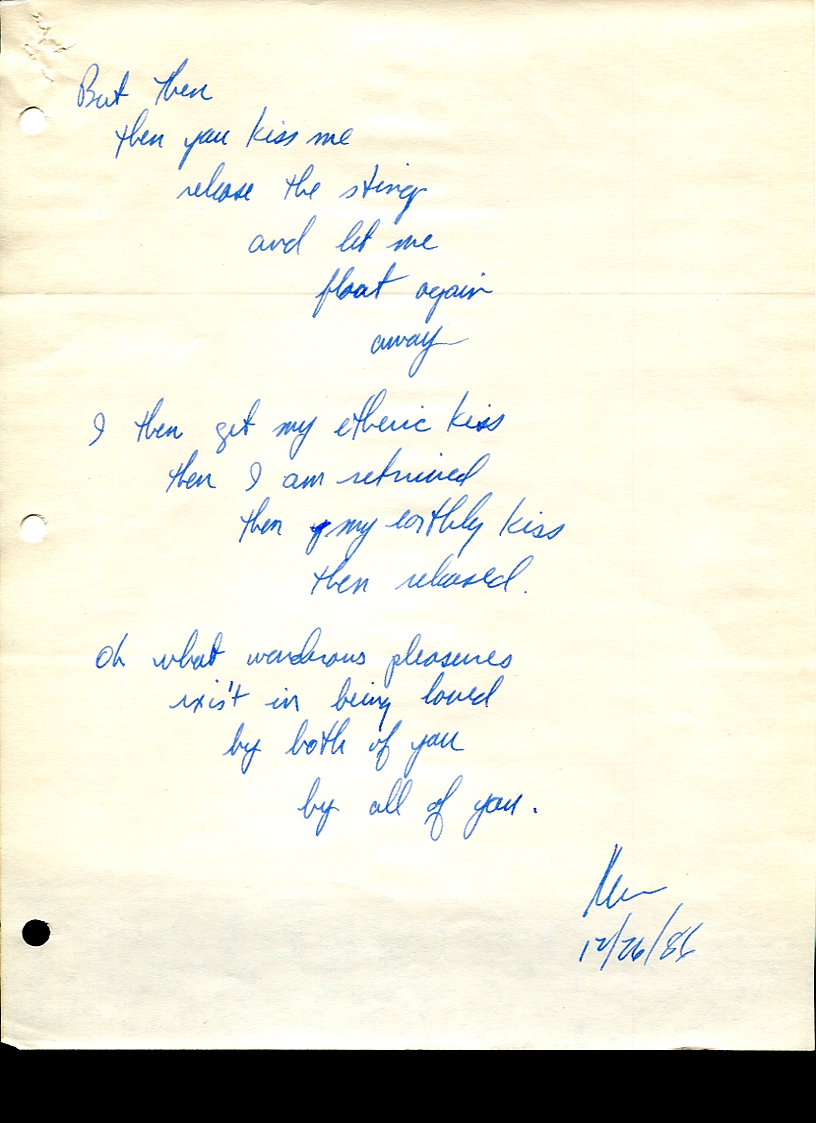 But then
then you kiss me
release the sting
and let me
float again
away
I then get my etheric kiss
then I am retrieved
then my earthly kiss
then released.
Oh what wondrous pleasures
exist in being loved
by both of you
by all of you.
12/26/86